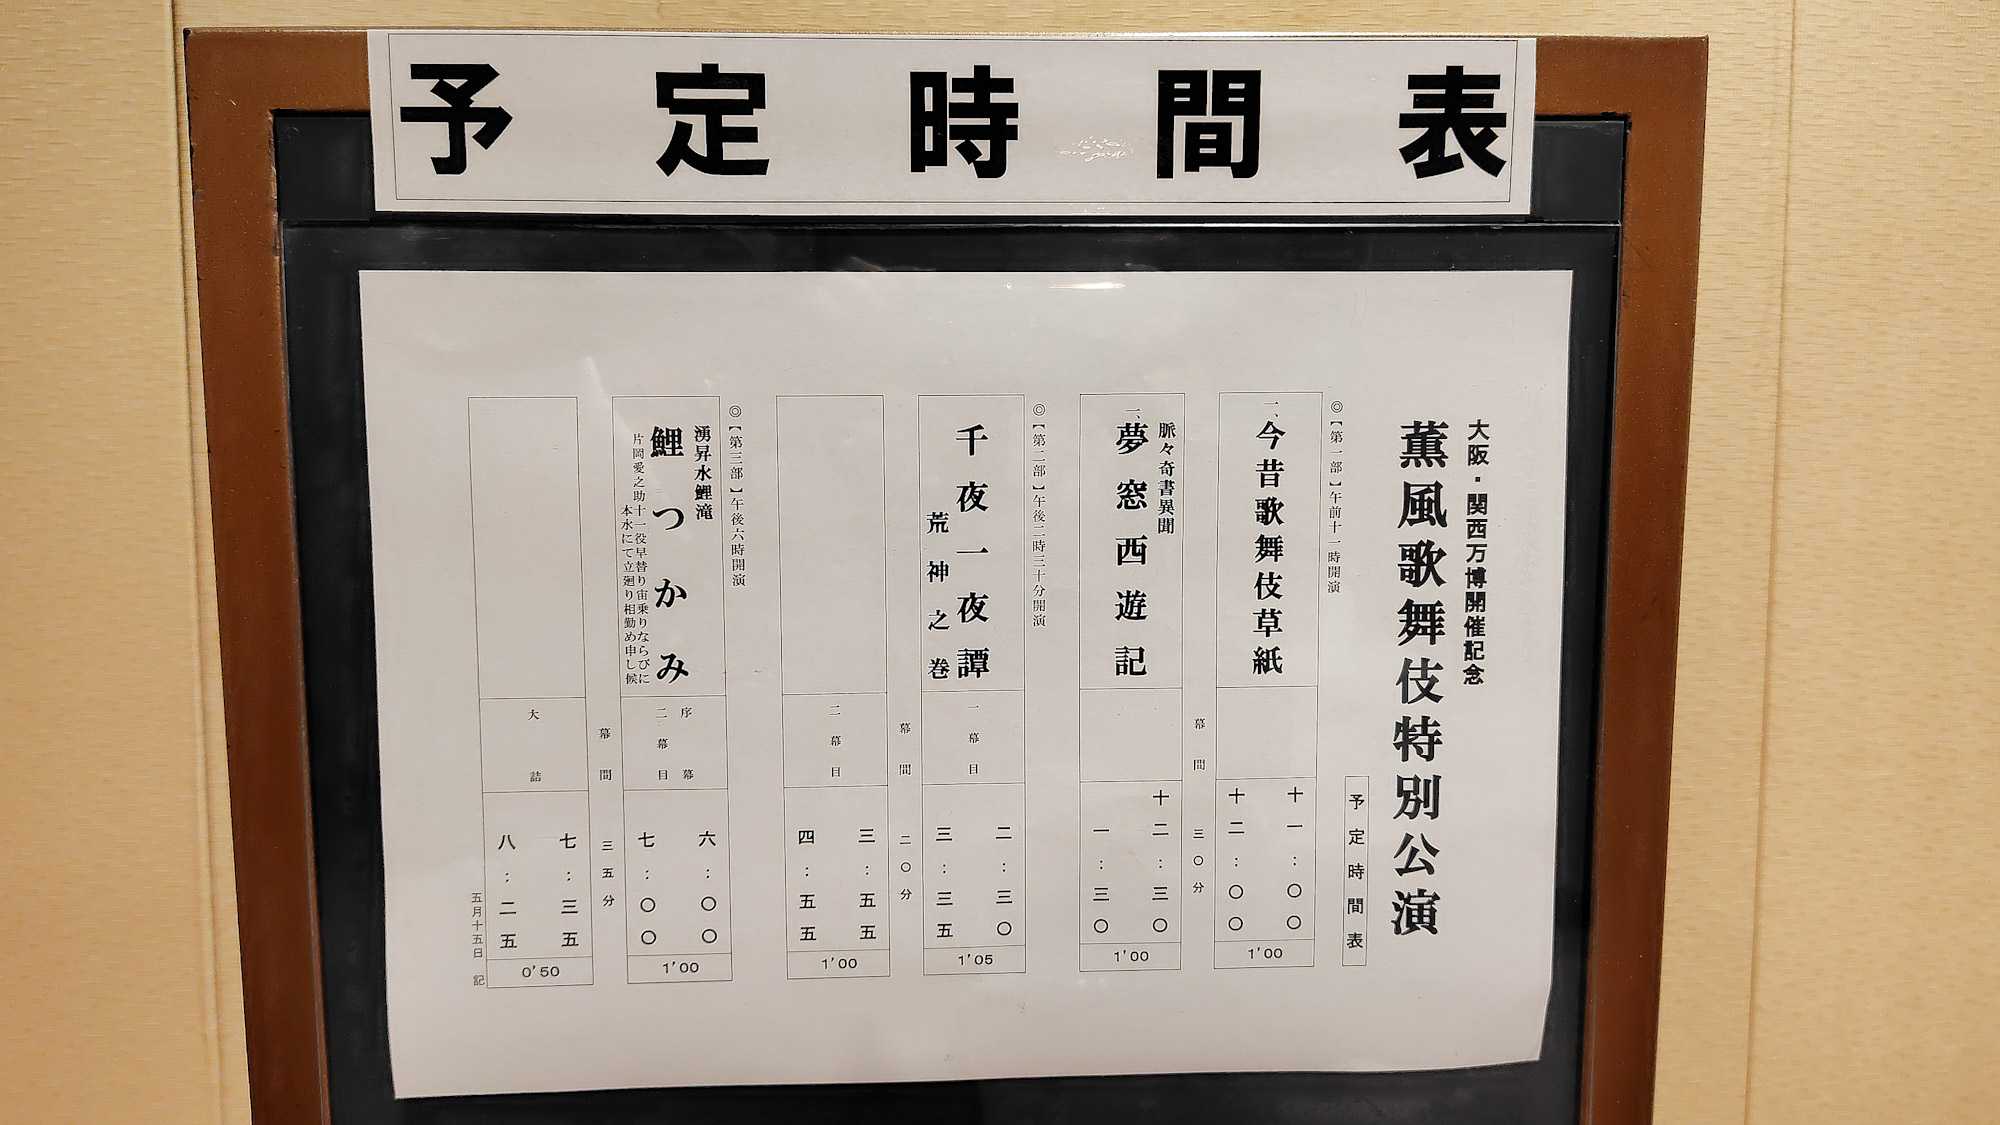 予定時間表
大阪・関西万博開催記念
薫風歌舞伎特別公演
予定時間表
◎【第一部】午前十一時開演
一、今昔歌舞伎草紙
十一:〇〇
十二:〇〇
1'00
幕間 三〇分
脈々奇書異聞
二、夢窓西遊記
十二:三〇
一:三〇
1'00
◎【第二部】午後二時三十分開演
千夜一夜譚
荒神之巻
一幕目
二:三〇
三:三五
1'05
幕間 二〇分
二幕目
三:五五
四:五五
1'00
◎【第三部】午後六時開演
湧昇水鯉滝
鯉つかみ
片岡愛之助十一役早替り宙乗りならびに
本水にて立廻り相勤め申し候
序幕
二幕目
六:〇〇
七:〇〇
1'00
幕間 三五分
大詰
七:三五
八:二五
0'50
五月十五日 記